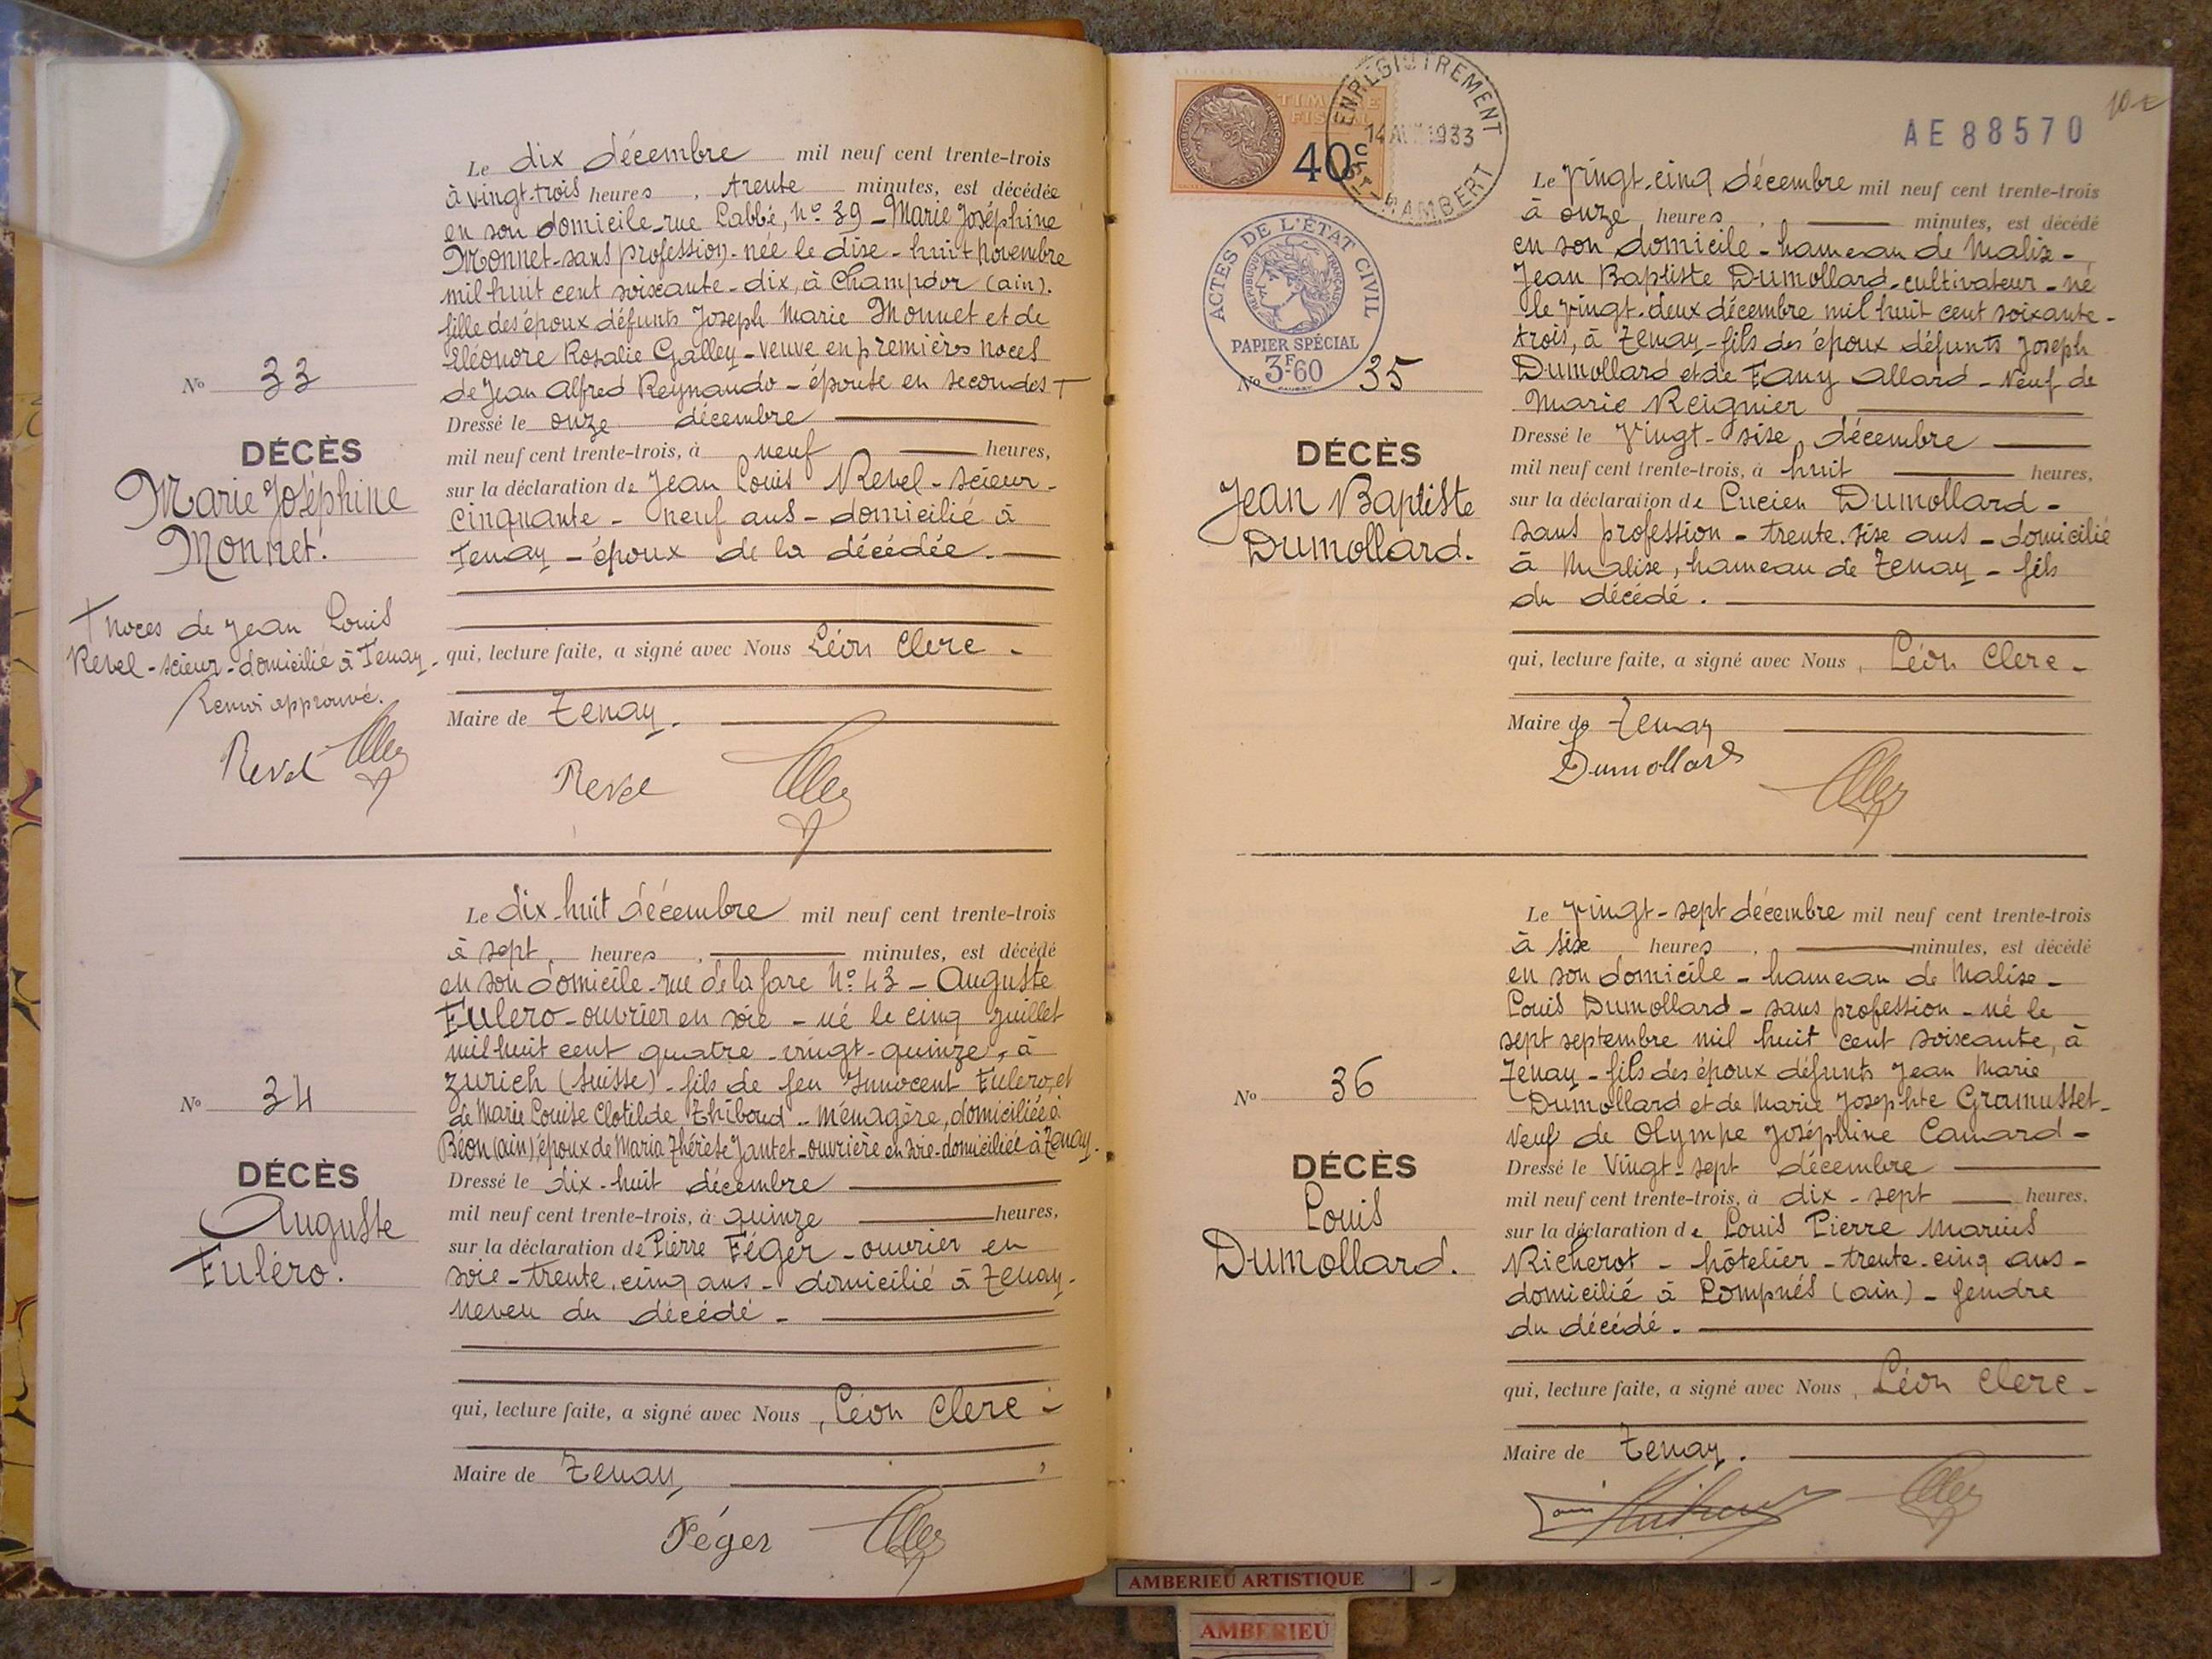 Le dix décembre mil neuf cent trente-trois
à vingt-trois heures, trente minutes, est décédée
en son domicile - rue Labbé, No 39 - Marie Joséphine
Monnet - sans profession - née le dixe-huit Novembre
mil huit cent soixante-dix, à Champdor (ain).
fille des époux défunts Joseph Marie Monnet et de
Eléonore Rosalie Galley - veuve en premières noces
de Jean Alfred Reynaud - épouse en secondes +
Dressé le onze décembre
mil neuf cent trente-trois, à neuf heures,
sur la déclaration de Jean Louis Revel - scieur -
cinquante-neuf ans - domicilié à
Tenay - époux de la décédée.
qui, lecture faite, a signé avec Nous Léon Clerc -
Maire de Tenay.
Revel
No 33
DÉCÈS
Marie Joséphine
Monnet.
+ noces de Jean Louis
Revel - scieur - domicilié à Tenay -
Renvoi approuvé.
Revel
Le dix-huit décembre mil neuf cent trente-trois
à sept heures, minutes, est décédé
en son domicile - rue de la gare No 43 - Auguste
Fuléro - ouvrier en soie - né le cinq juillet
mil huit cent quatre-vingt-quinze, à
Zurich (Suisse) - fils de feu Innocent Fuléro, et
de Marie Louise Clotilde Thiboud - Ménagère, domiciliée à
Béon (ain), époux de Maria Thérèse Jantet - ouvrière en soie - domiciliée à Tenay -
Dressé le dix-huit décembre
mil neuf cent trente-trois, à quinze heures,
sur la déclaration de Pierre Féger - ouvrier en
soie - trente-cinq ans - domicilié à Tenay -
neveu du décédé -
qui, lecture faite, a signé avec Nous, Léon Clerc -
Maire de Tenay,
Féger
No 34
DÉCÈS
Auguste
Fuléro.
TIMBRE
FISCAL
40c
ENREGISTREMENT
1933
AE 88570
ACTES DE L'ÉTAT CIVIL
RÉPUBLIQUE FRANÇAISE
PAPIER SPÉCIAL
3F60
Le vingt-cinq décembre mil neuf cent trente-trois
à onze heures, minutes, est décédé
en son domicile - hameau de Malix -
Jean Baptiste Dumollard - cultivateur - né
le vingt-deux décembre mil huit cent soixante-
trois, à Tenay - fils des époux défunts Joseph
Dumollard et de Fany Allard - Veuf de
Marie Reignier
Dressé le Vingt-sixe décembre
mil neuf cent trente-trois, à huit heures,
sur la déclaration de Lucien Dumollard -
sans profession - trente-sixe ans - domicilié
à Malixe, hameau de Tenay - fils
du décédé.
qui, lecture faite, a signé avec Nous, Léon Clerc -
Maire de Tenay
Dumollard
No 35
DÉCÈS
Jean Baptiste
Dumollard.
Le vingt-sept décembre mil neuf cent trente-trois
à sixe heures, minutes, est décédé
en son domicile - hameau de Malixe -
Louis Dumollard - sans profession - né le
sept septembre mil huit cent soixante, à
Tenay - fils des époux défunts Jean Marie
Dumollard et de Marie Josephte Gramusset -
Veuf de Olympe Joséphine Canard -
Dressé le Vingt-sept décembre
mil neuf cent trente-trois, à dix-sept heures,
sur la déclaration de Louis Pierre Marius
Richerot - hôtelier - trente-cinq ans -
domicilié à Lompnés (ain) - gendre
du décédé.
qui, lecture faite, a signé avec Nous, Léon Clerc -
Maire de Tenay.
No 36
DÉCÈS
Louis
Dumollard.
AMBERIEU ARTISTIQUE
AMBERIEU